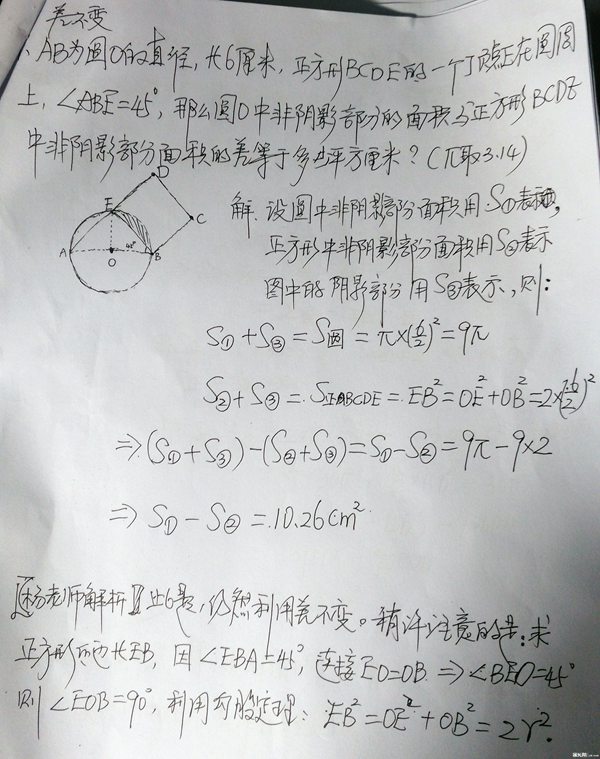 差不变
、AB为圆O的直径,长6厘米,正方形BCDE的一个顶点E在圆周
上,∠ABE=45°,那么圆O中非阴影部分的面积与正方形BCDE
中非阴影部分面积的差等于多少平方厘米?(π取3.14)
D
E
C
A
45°
B
O
解:设圆中非阴影部分面积用S①表示,
正方形中非阴影部分面积用S②表示
图中的阴影部分用S③表示,则:
S①+S③=S圆=π×(6/2)²=9π
S②+S③=S正BCDE=EB²=OE²+OB²=2×(6/2)²
⇒(S①+S③)-(S②+S③)=S①-S②=9π-9×2
⇒S①-S②=10.26cm²
【杨老师解析】此题,仍然利用差不变。稍许注意的是:求
正方形的边长EB,因∠EBA=45°,连接EO=OB⇒∠BEO=45°
则∠EOB=90°,利用勾股定理:EB²=OE²+OB²=2r².